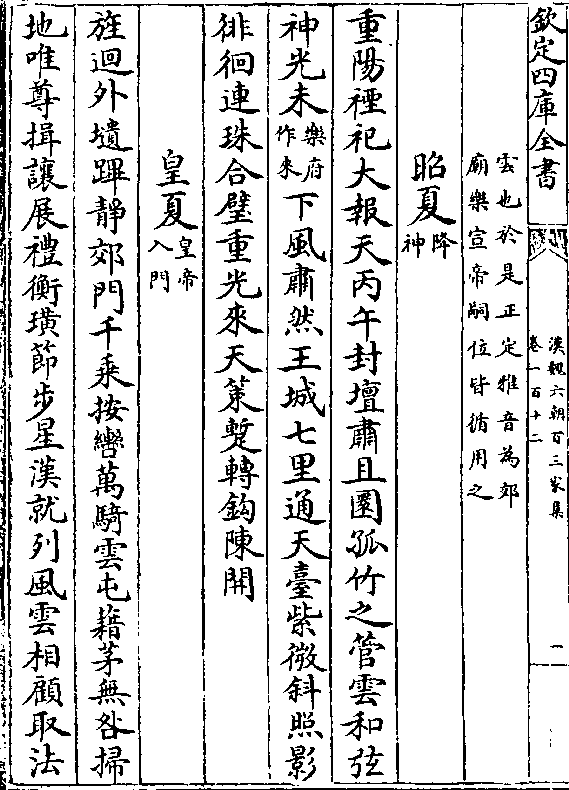 欽定四庫全書
漢魏六朝百三家集
卷一百十二
一
雲也於是正定雅音為郊
廟樂宣帝嗣位皆循用之
昭夏降神
重陽禋祀大報天丙午封壇肅且圜孤竹之管雲和弦
神光未樂府作來下風肅然王城七里通天臺紫微斜照影
徘徊連珠合璧重光來天策蹔轉鈎陳開
皇夏皇帝入門
旌迴外壝蹕靜郊門千乘按轡萬騎雲屯藉茅無咎掃
地唯尊揖讓展禮衡璜節步星漢就列風雲相顧取法